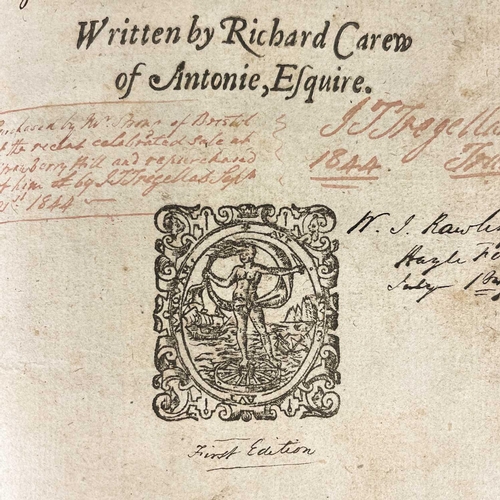 Written by Richard Carew
of Antonie, Eſquire.
Purchased by Mr Strong of Bristol
at the recent celebrated sale at
Strawberry Hill and repurchased
of him by J. T. Tregellas Sept
21st 1844
J T Tregellas
1844
W. J. Rawlin
Hayle
July
First Edition